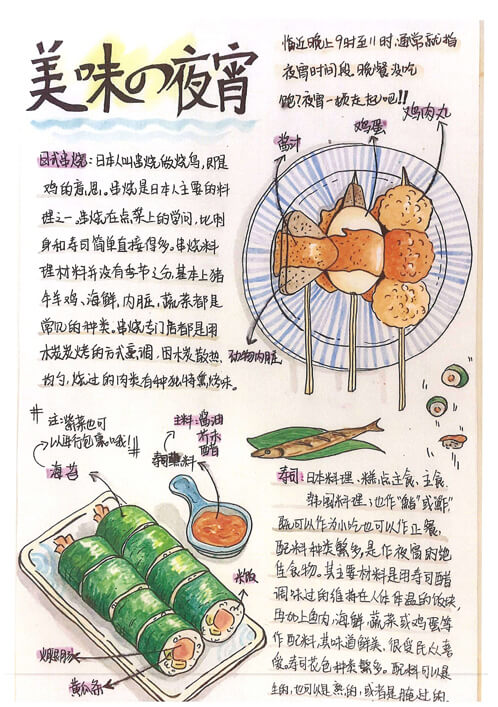 美味の夜宵
临近晚上9时至11时,通常就指
夜宵时间段。晚餐没吃
饱?夜宵一顿走起吧!!
酱汁
鸡蛋
鸡肉丸
动物内脏
日式串烧:日本人叫串烧做烧鸟,即是
鸡的意思。串烧是日本人主要的料
理之一。串烧在点菜上的学问,比刺
身和寿司简单直接得多。串烧料
理材料并没有季节之分,基本上猪
牛羊鸡、海鲜,内脏,蔬菜都是
常见的种类。串烧专门店都是用
木炭炭烤的方式烹调,因木炭散热
均匀,烧过的肉类有种独特熏烧味。
注:紫菜也可
以进行包裹哦!
海苔
主料:酱油
芥末
醋
寿司蘸料
米饭
黄瓜条
寿司:日本料理、糕点主食、主食
韩国料理;也作“鮨”或“鲊”,
既可以作为小吃也可以作正餐,
配料种类繁多,是作夜宵的绝
佳食物。其主要材料是用寿司醋
调味过的维持在人体体温的饭块,
再加上鱼肉,海鲜,蔬菜或鸡蛋等
作配料,其味道鲜美,很受民众喜
爱。寿司花色种类繁多。配料可以是
生的,也可以是熟的,或者是腌过的。